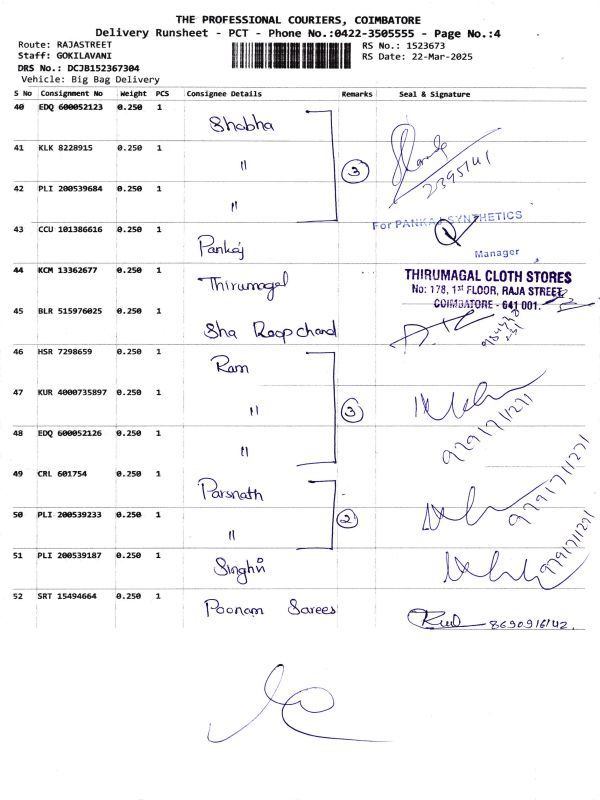 THE PROFESSIONAL COURIERS, COIMBATORE
Delivery Runsheet - PCT - Phone No.:0422-3505555 - Page No.:4
Route: RAJASTREET
RS No.: 1523673
Staff: GOKILAVANI
RS Date: 22-Mar-2025
DRS No.: DCJB152367304
Vehicle: Big Bag Delivery
S No Consignment No Weight PCS Consignee Details Remarks Seal & Signature
40 EDQ 600052123 0.250 1 Shobha
41 KLK 8228915 0.250 1 " 3
2395141
42 PLI 200539684 0.250 1 "
For PANKAJ SYNTHETICS
43 CCU 101386616 0.250 1 Pankaj
Manager
44 KCM 13362677 0.250 1 Thirumagal
THIRUMAGAL CLOTH STORES
No: 178, 1st FLOOR, RAJA STREET
COIMBATORE - 641 001.
45 BLR 515976025 0.250 1 Sha Roop chand
46 HSR 7298659 0.250 1 Ram
47 KUR 4000735897 0.250 1 " 3
9791711271
48 EDQ 600052126 0.250 1 "
49 CRL 601754 0.250 1 Parsnath
50 PLI 200539233 0.250 1 " 2
9791711271
51 PLI 200539187 0.250 1 Singhvi
9791711271
52 SRT 15494664 0.250 1 Poonam Sarees
8690916142.